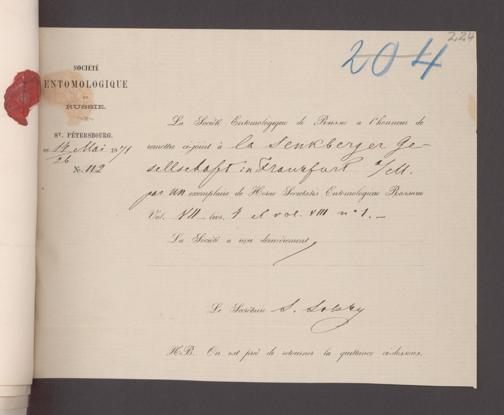 224
204
SOCIÉTÉ
ENTOMOLOGIQUE
DE
RUSSIE.
ST. PÉTERSBOURG.
14 Mai 1871
26
No. 112
La Société Entomologique de Russie a l'honneur de
remettre ci-joint à la Senkberger Ge-
sellschaft in Frankfurt a/M.
par un exemplaire de Horae Societatis Entomologicae Rossicae
Vol. VII livr. et vol. VIII no 1. –
La Société a reçu dernièrement
Le Secrétaire S. Solsky
N.B. On est prié de retourner la quittance ci-dessous.